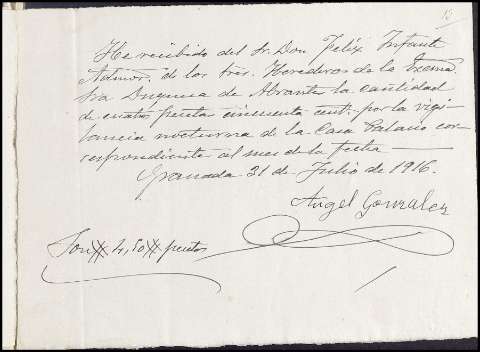 15
He recibido del Sr. Don Félix Infante
Admor. de los Sres. Herederos de la Excma.
Sra Duquesa de Abrantes la cantidad
de cuatro pesetas cincuenta cent. por la vigi
lancia nocturna de la Casa Palacio cor
respondiente al mes de la fecha
Granada 31 de Julio de 1916.
Angel Gonzalez
Son 4,50 pesetas